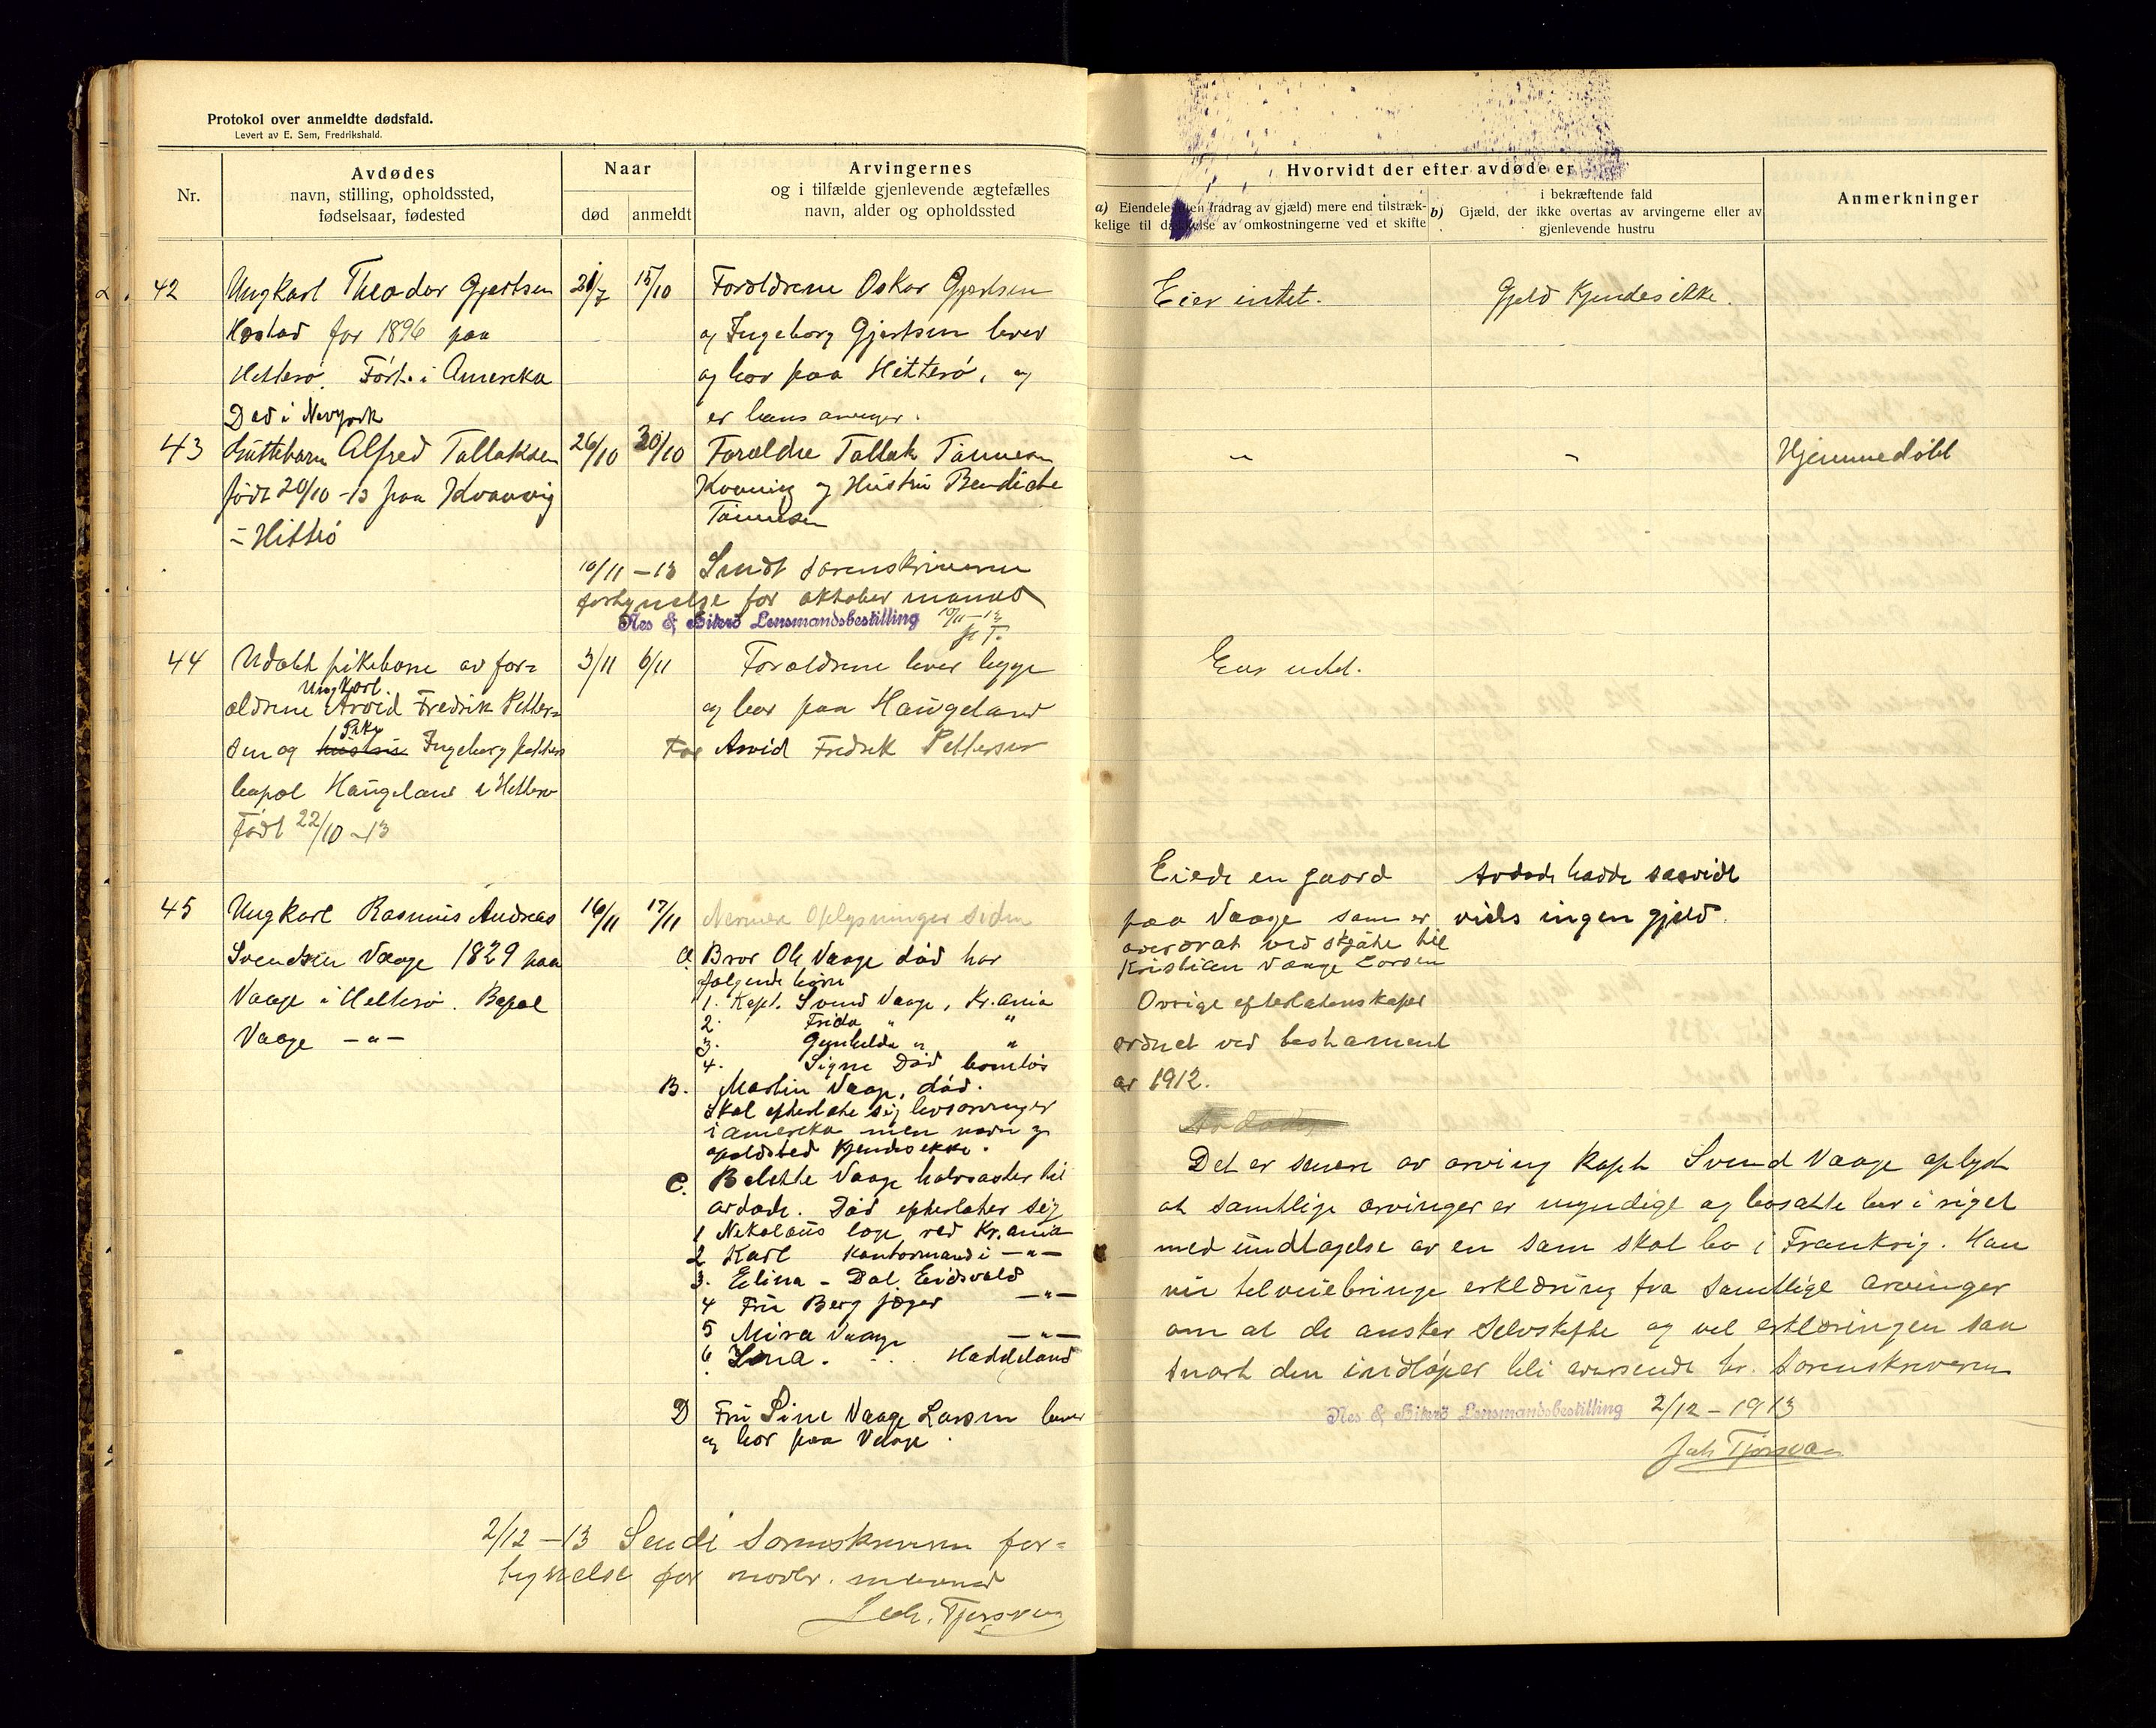 Protokol over anmeldte dødsfald.
Levert av E. Sem, Fredrikshald.
Nr.
Avdødes
navn, stilling, opholdssted,
fødselsaar, fødested
Naar
død
anmeldt
Arvingernes
og i tilfælde gjenlevende ægtefælles
navn, alder og opholdssted
42
Ungkarl Theodor Gjertsen
for 1896 paa
Hitterø. Født i Amerika
Død i Newyork
21/7
15/10
Forældrene Oskar Gjertsen
og Ingeborg Gjertsen lever
og bor paa Hitterø, og
er hans arvinger.
43
Guttebarn Alfred Tallaksen
født 20/10 -13 paa Kvanvig
= Hitterø
26/10
30/10
Forældre Tallak Tønnesen
Kvanvig og Hustru Bendicte
Tønnesen
10/11 - 13 Sendt sorenskriveren
fortegnelse for oktober maaned
Nes & Hiterø Lensmandsbestilling 10/11-13
J. T.
44
Udøbt pikebarn av for=
ungkarl
ældrene Arvid Fredrik Petter=
Pike
sen og hustru Ingeborg
bopæl Haugeland i Hitterø
Født 22/10 -13
3/11
6/11
Forældrene lever begge
og bor paa Haugeland
Far Arvid Fredrik Pettersen
45
Ungkarl Rasmus Andreas
Svendsen Vaage 1829 paa
Vaage i Hitterø. Bopæl
Vaage - " -
16/11
17/11
Nermere Oplysninger siden
a Bror Ole Vaage død har
følgende børn
1. Kapt. Svend Vaage, Kr.ania
2. Frida " "
3. Gunhilda " "
4. Signe Død barnløs
B. Martin Vaage, død.
Skal efterlate sig livsarvinger
i amerika men navn og
opoldsted kjendes ikke.
C. Belette Vaage halvsøster til
avdøde. Død efterlater sig
1 Nikolaus løge ved Kr.ania
2 Karl kontormand i - " -
3. Elina - Dal Eidsvold
4 Fru Berg jæger - " -
5 Mira Vaage - " -
6 Lina. Haddeland
D Fru Sine Vaage Larsen lever
og bor paa Vaage.
2/12 - 13 Sendt Sorenskriveren for=
tegnelse for novbr. maaned
Joh. Tjørsvaag
Hvorvidt der efter avdøde er
a) Eiendele (uten fradrag av gjæld) mere end tilstræk-
kelige til dækkelse av omkostningerne ved et skifte
b)
i bekræftende fald
Gjæld, der ikke overtas av arvingerne eller av
gjenlevende hustru
Anmerkninger
Eier intet.
Gjeld kjendes ikke.
"
"
Hjemmedøbt
Eier intet.
Eiede en gaard
paa Vaage som er
overdrat ved skjøte til
Kristian Vaage Larsen
Øvrige efterlatenskaper
ordnet ved testament
av 1912.
Avdøde hadde saavidt
vides ingen gjeld.
Det er senere av arving kapt Svend Vaage oplyst
at samtlige arvinger er myndige og bosatte her i riget
med undtagelse av en som skal bo i Frankrig. Han
vil tilveiebringe erklæring fra samtlige arvinger
om at de ønsker selvskifte og vil erklæringen saa
snart den indløper bli oversendt hr. Sorenskriveren
Nes & Hiterø Lensmandsbestilling 2/12 - 1913
Joh Tjørsvaag